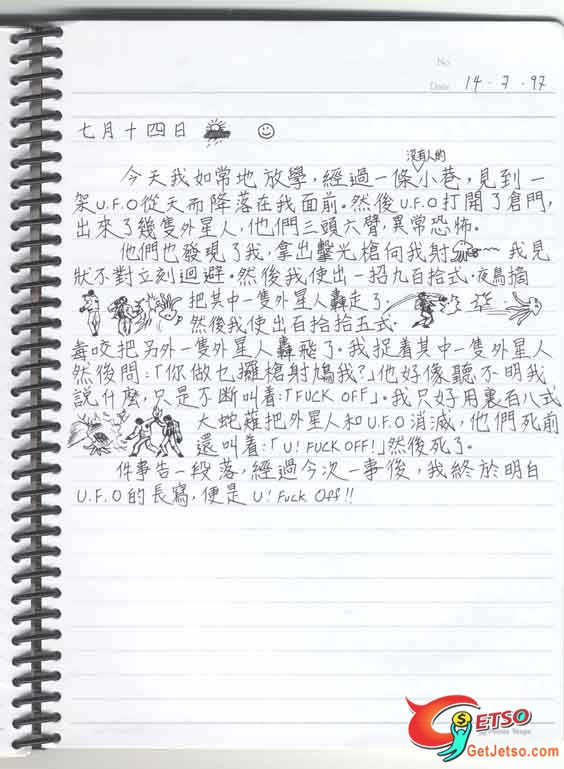 No
Date 14.7.97
七月十四日
沒有人的
今天我如常地放學,經過一條小巷,見到一
架U.F.O從天而降落在我面前.然後U.F.O打開了倉門,
出來了幾隻外星人,他們三頭六臂,異常恐怖.
他們也發現了我,拿出擊光槍向我射 我見
狀不對立刻迴避.然後我使出一招九百拾式.夜鳥摘
把其中一隻外星人轟走了.
然後我使出百拾拾五式.
毒咬把另外一隻外星人轟飛了.我捉着其中一隻外星人
然後問:「你做乜攞槍射鳩我?」他好像聽不明我
說什麼,只是不斷叫着:「FUCK OFF」.我只好用裏百八式
大蛇薙把外星人和U.F.O消滅,他們死前
還叫着:「U! FUCK OFF!」然後死了.
件事告一段落,經過今次一事後,我終於明白
U.F.O的長寫,便是U! Fuck Off!!
GETSO
GetJetso.com